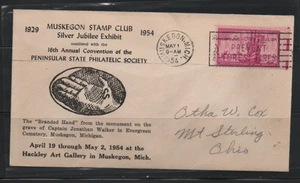 1929 MUSKEGON STAMP CLUB 1954
Silver Jubilee Exhibit
combined with the
16th Annual Convention of the
PENINSULAR STATE PHILATELIC SOCIETY
MUSKEGON, MICH.
MAY 1
9-AM
1954
SS
The "Branded Hand" from the monument on the
grave of Captain Jonathan Walker in Evergreen
Cemetery, Muskegon, Michigan.
April 19 through May 2, 1954 at the
Hackley Art Gallery in Muskegon, Mich.
Otha W. Cox
Mt Sterling
Ohio